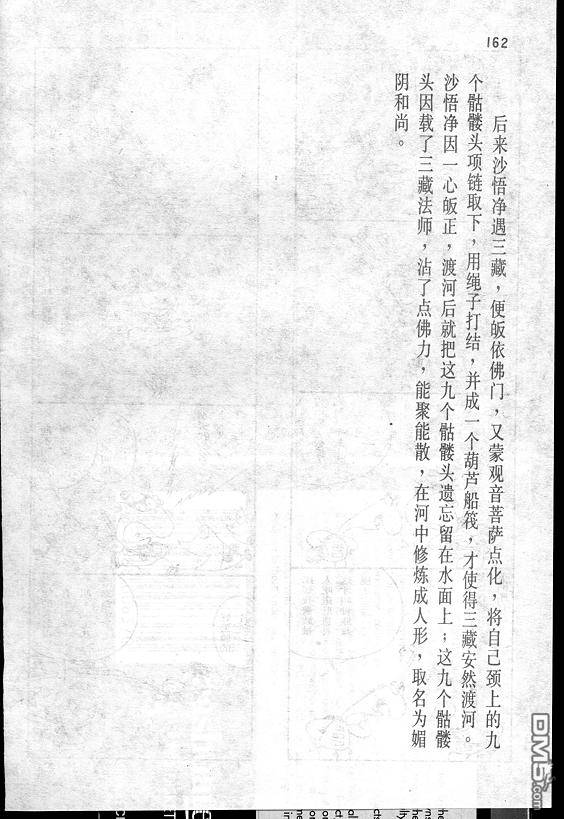 162
后来沙悟净遇三藏，便皈依佛门，又蒙观音菩萨点化，将自己颈上的九
个骷髅头项链取下，用绳子打结，并成一个葫芦船筏，才使得三藏安然渡河。
沙悟净因一心皈正，渡河后就把这九个骷髅头遗忘留在水面上；这九个骷髅
头因载了三藏法师，沾了点佛力，能聚能散，在河中修炼成人形，取名为媚
阴和尚。
DM5.com